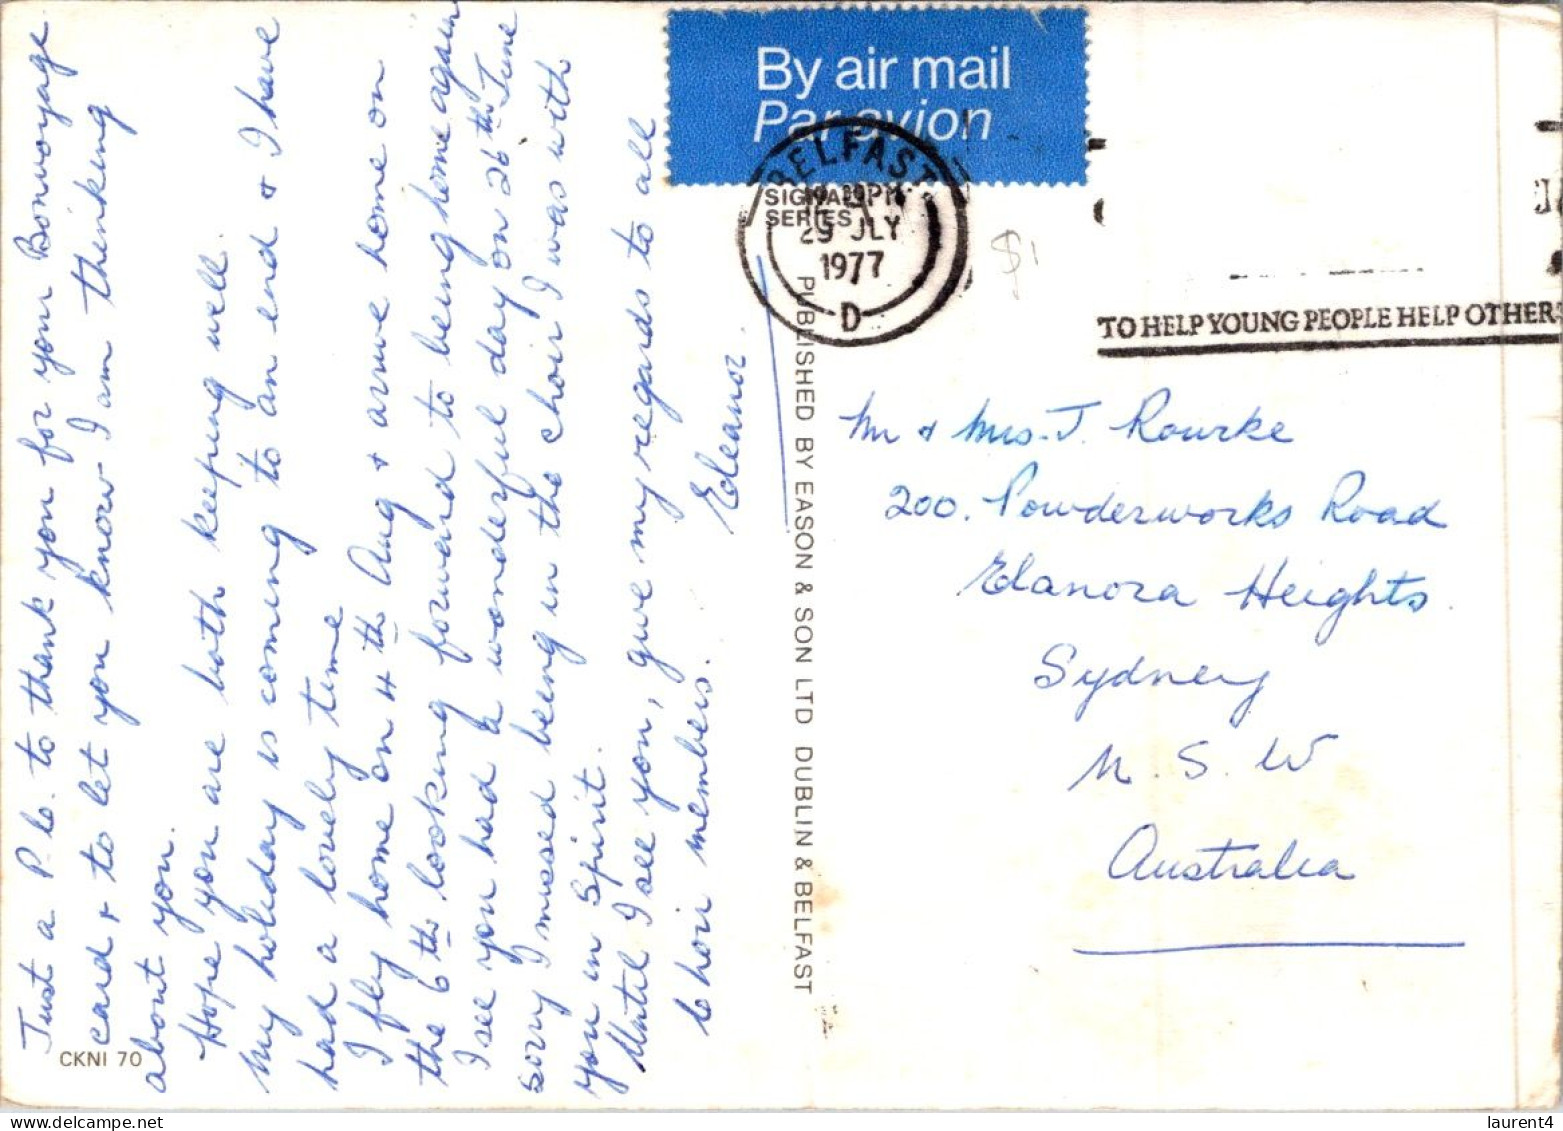 Just a P.C. to thank you for your Bonvoyage
card, + to let you know I am thinking
about you.
Hope you are both keeping well.
My holiday is coming to an end + I have
had a lovely time
I fly home on 4th Aug + arrive home on
the 6th looking forward to being home again
I see you had a wonderful day on 26th June
sorry I missed being in the choir I was with
you in Spirit.
Until I see you, give my regards to all
Choir members.
Eleanor
CKNI 70
By air mail
Par avion
SIGNAL
SERIES
BELFAST
29 JLY
1977
D
$1
TO HELP YOUNG PEOPLE HELP OTHER
PUBLISHED BY EASON & SON LTD DUBLIN & BELFAST
Mr + Mrs. J. Rourke
200. Powderworks Road
Elanora Heights
Sydney
N. S. W
Australia
laurent4